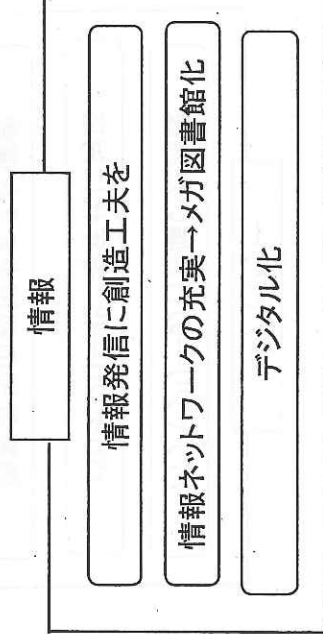 情報
情報発信に創造工夫を
情報ネットワークの充実→メガ図書館化
デジタル化